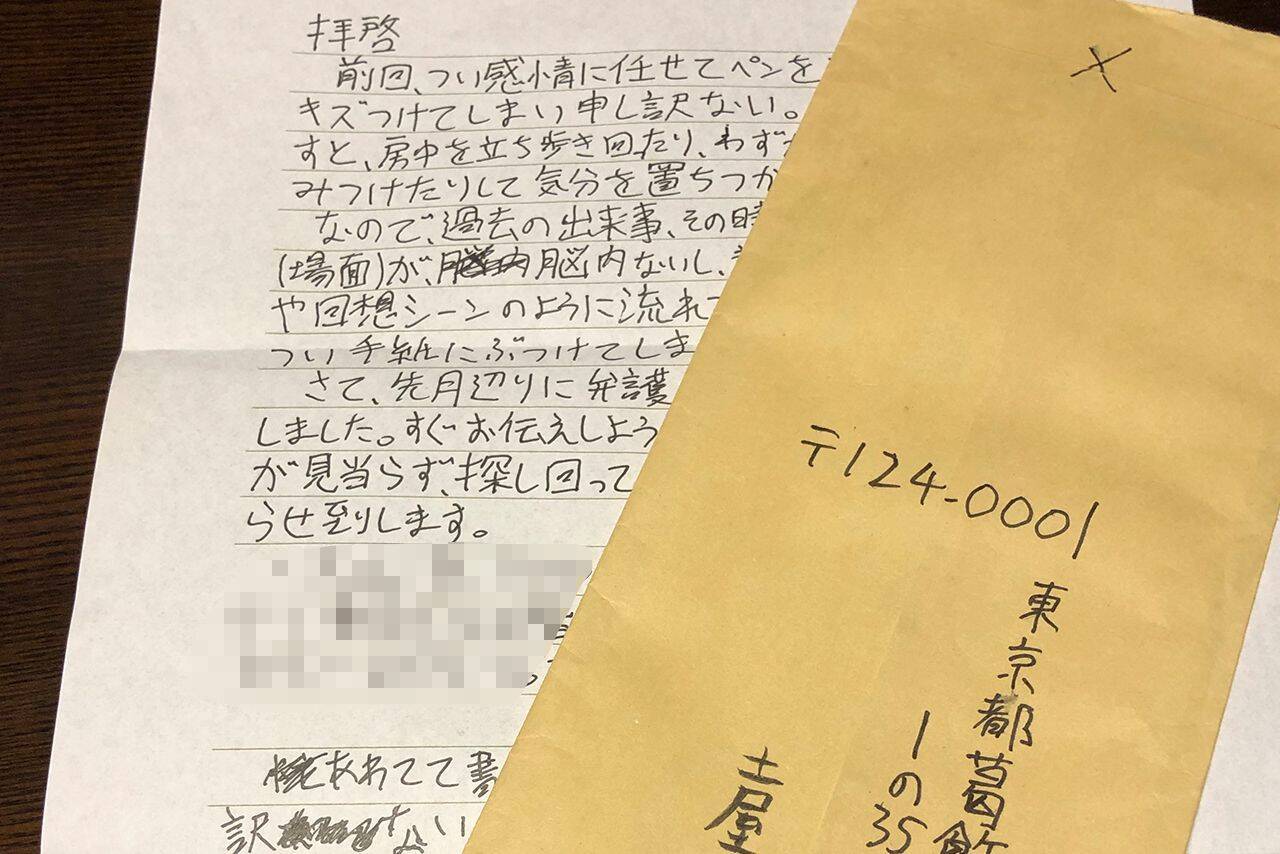 拝啓
前回、つい感情に任せてペンを
キズつけてしまい申し訳ない。
すと、房中を立ち歩き回たり、わず
みつけたりして気分を置ちつか
なので、過去の出来事、その時
(場面)が、脳内ないし、
や回想シーンのように流れて
つい手紙にぶつけてしま
さて、先月辺りに弁護
しました。すぐお伝えしよう
が見当らず、探し回って
らせ致します。
あわてて書
訳ない
〒124-0001
東京都葛飾
1の35
土屋